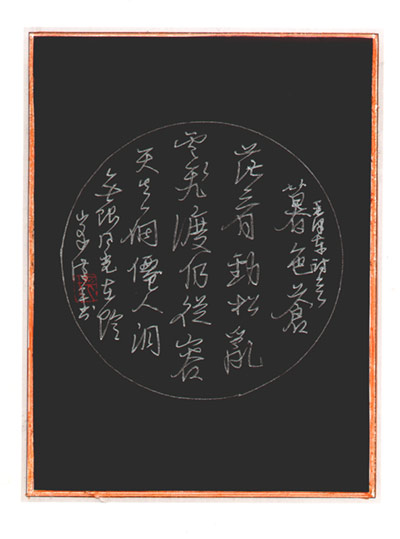 毛泽东诗
暮色蒼
茫看勁松亂
雲飛渡仍從容
天生一個僊人洞
無限風光在險
峰 书